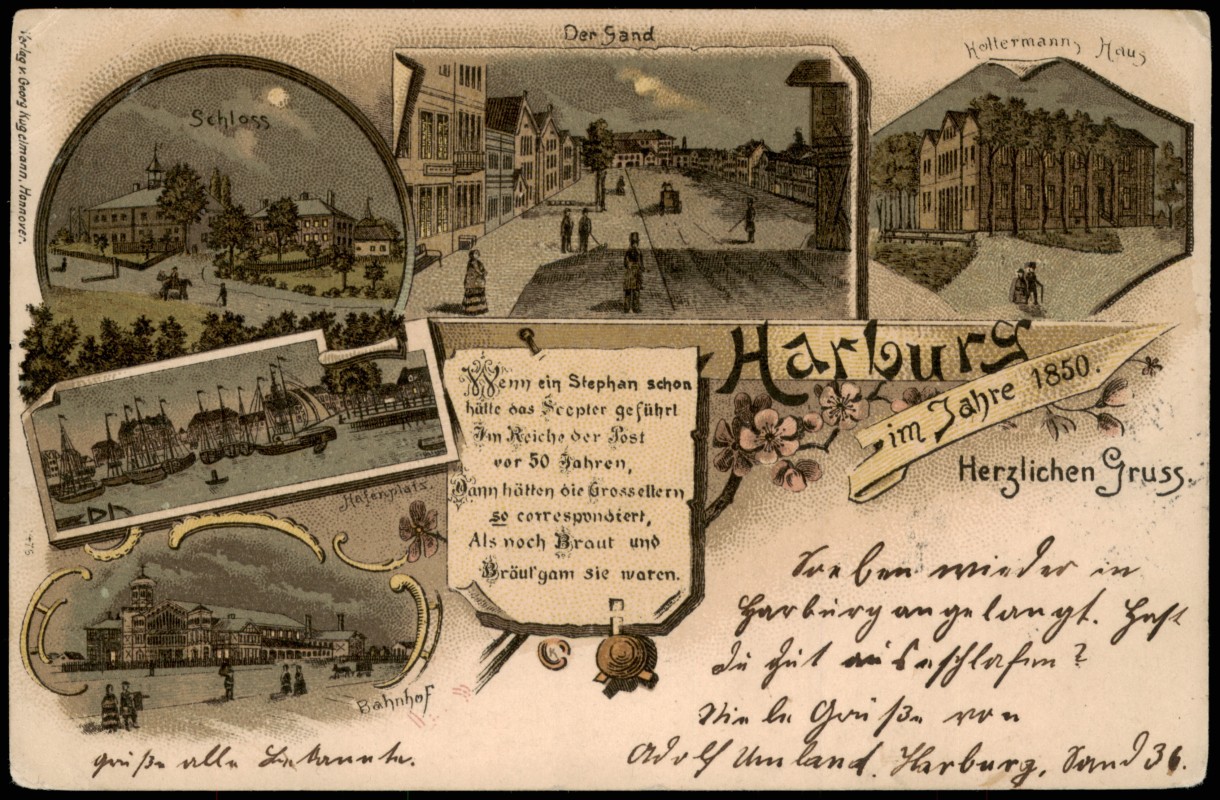 Verlag v. Georg Kugelmann, Hannover.
Schloss
Der Sand
Koltermanns Haus
Hafenplatz.
Bahnhof
Wenn ein Stephan schon
hätte das Scepter geführt
Im Reiche der Post
vor 50 Jahren,
Dann hätten die Grosseltern
so correspondiert,
Als noch Braut und
Bräut'gam sie waren.
Harburg
im Jahre 1850.
Herzlichen Gruss.
Soeben wieder in
Harburg angelangt. Hast
du gut ausgeschlafen?
Viele Grüße von
Adolf Umland. Harburg, Sand 36.
Grüße alle Bekannte.